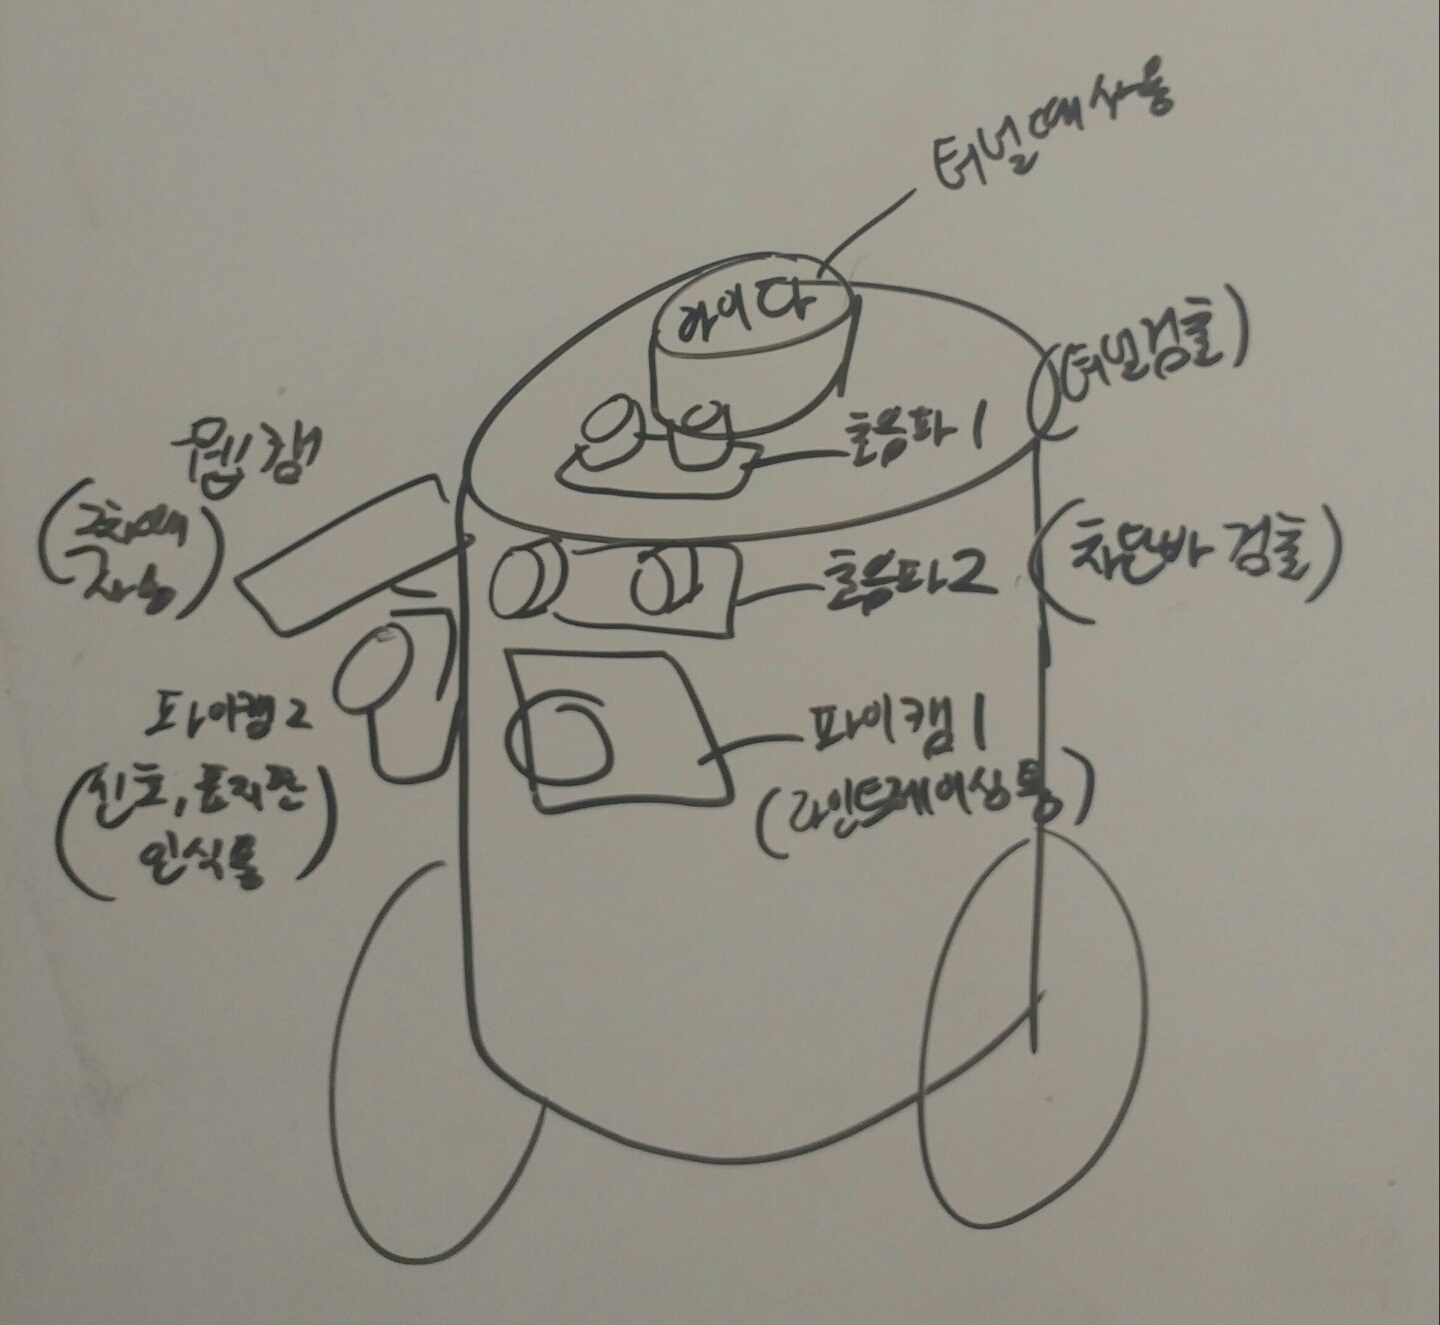 터널때 사용
라이다
(터널검출)
초음파1
웹캠
초음파2
(차단바 검출)
파이캠2
(신호, 표지판
인식용)
파이캠1
(라인트레이싱용)